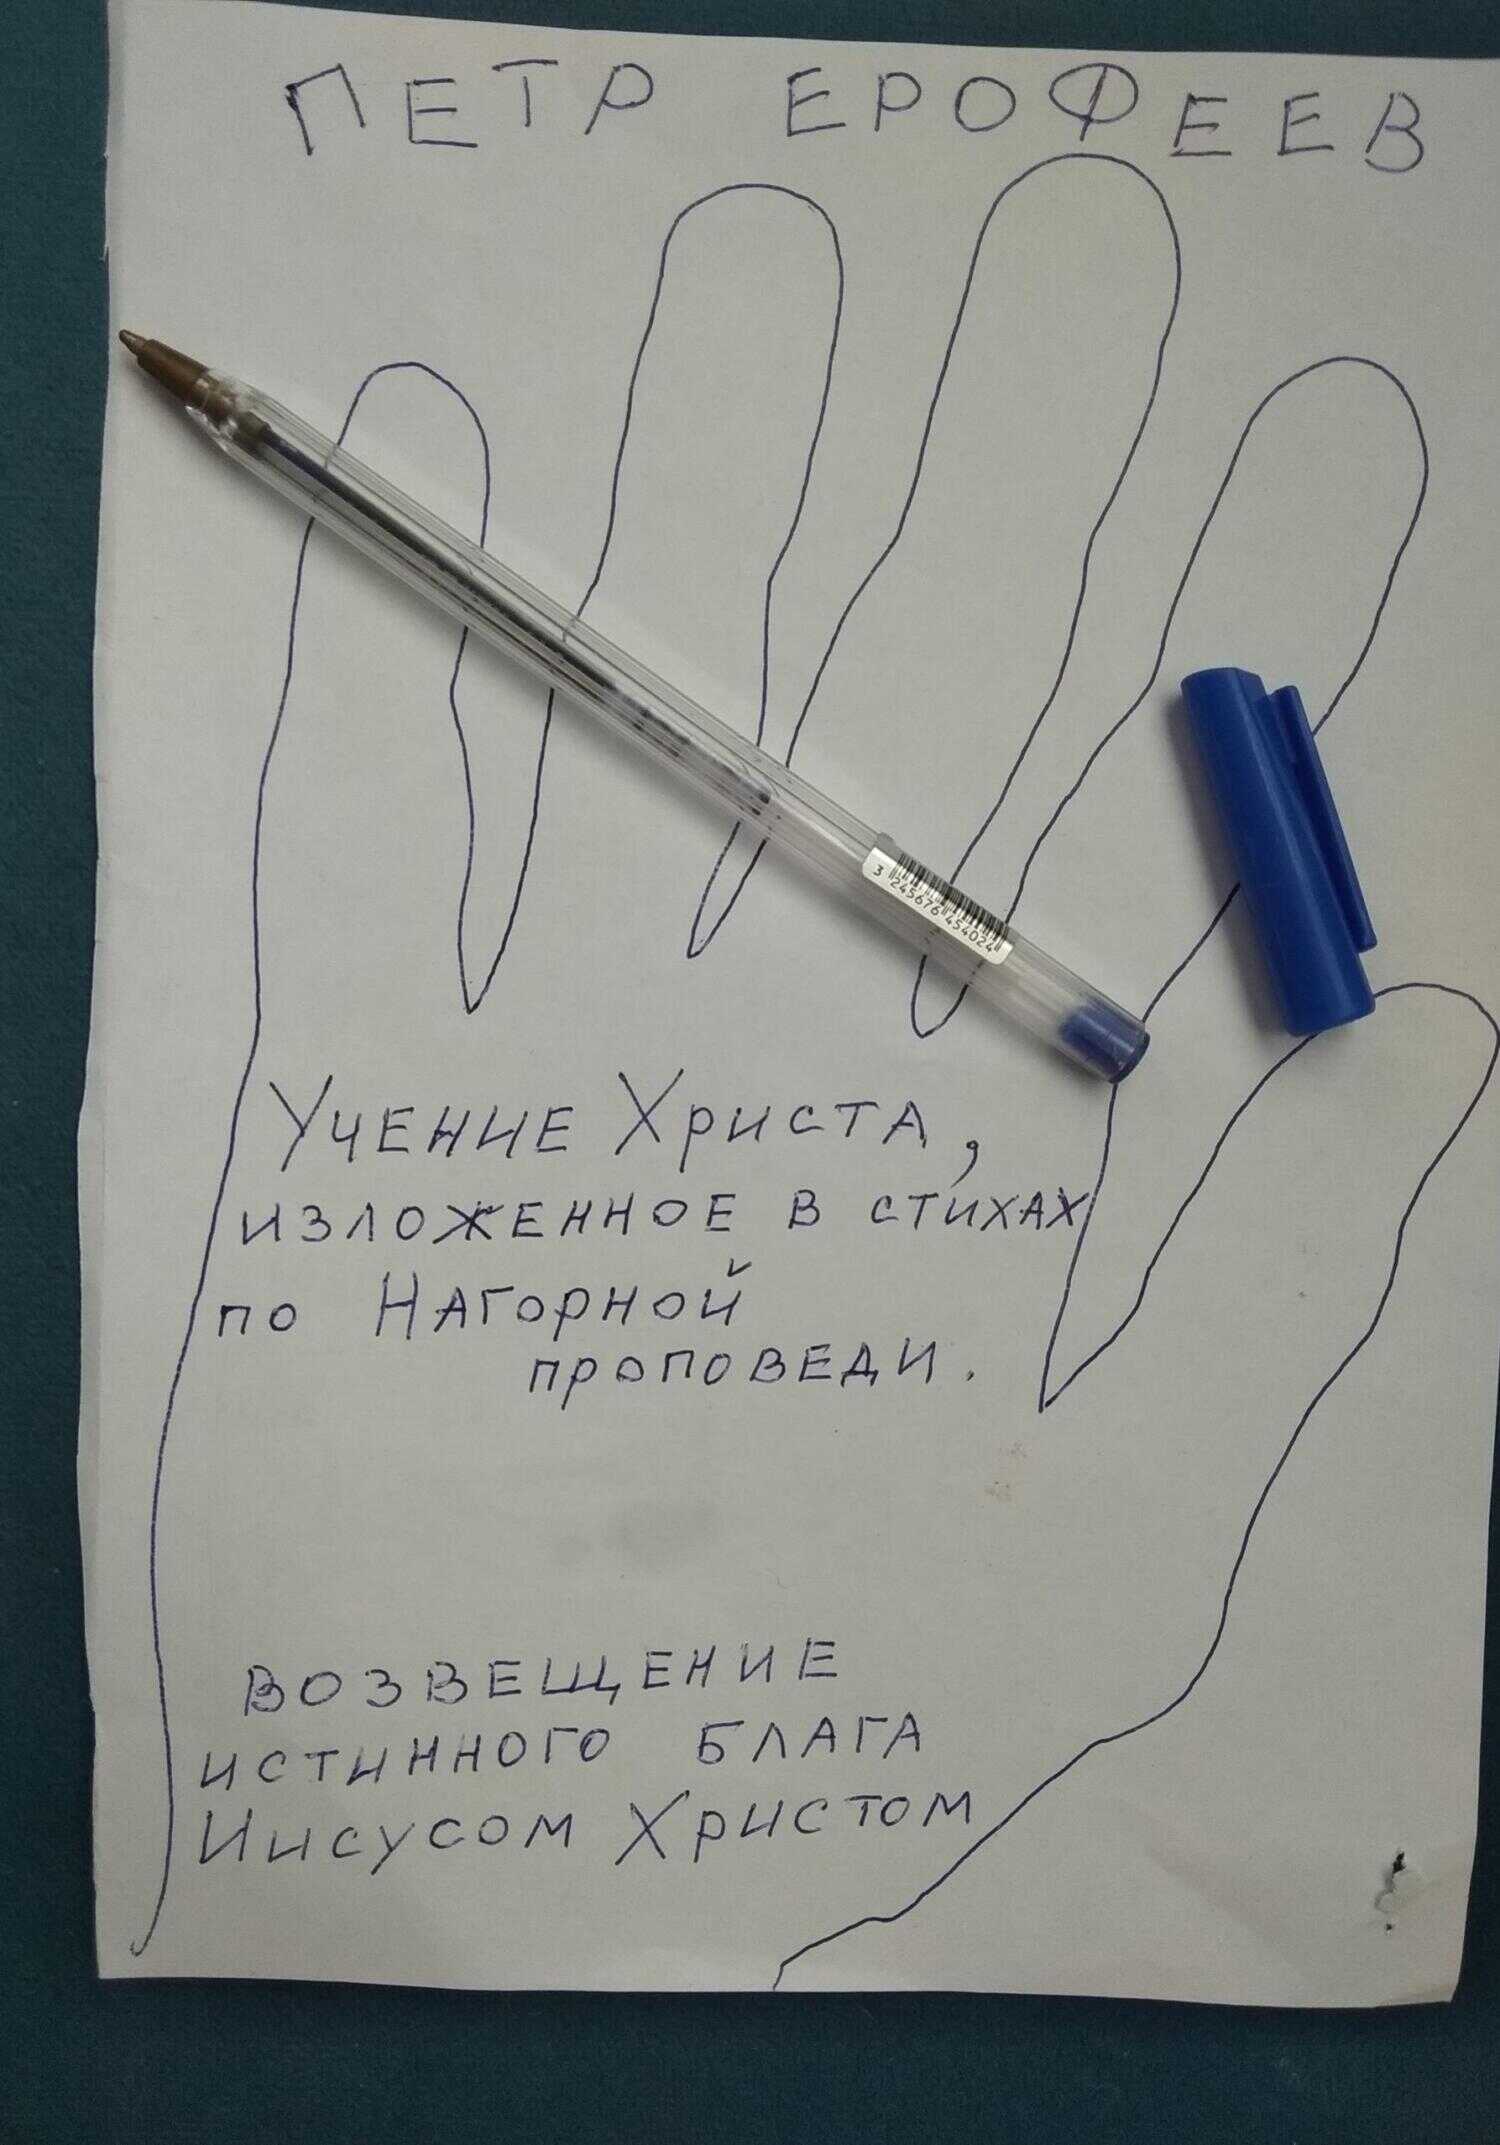 ПЕТР ЕРОФЕЕВ
3 245676 454024
Учение Христа,
изложенное в стихах
по Нагорной
проповеди.
возвещение
истинного блага
Иисусом Христом